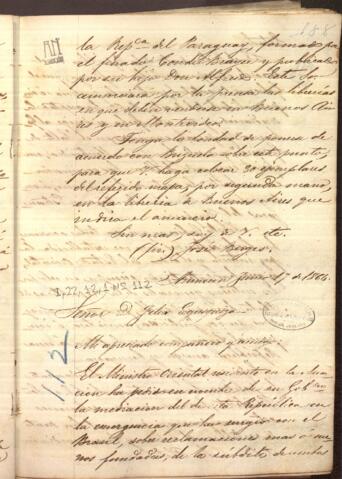 188
la Repca del Paraguay, formado por
el finado Conde Brayer y publicado
por su hijo Don Alfredo. Este So
anunciara por la prensa las librerias
en que deben venderse en Buenos Ai
res y en Montevideo.
Tenga la bondad de ponerse de
acuerdo con Brizuela sobre este punto,
para que haga colocar 30 ejemplares
del referido mapa, por segunda mano,
en la libreria de Buenos Aires que
indica el anuncio.
Sin mas soy de V. etc.
(fir) José Berges.
Asuncion Junio 17 de 1864.
I-22,12,1 Nº 112
Señor D. Felix Egusquiza
112
Mi apreciado compatriota y amigo:
El Ministro Oriental residente en la Asun
cion ha pedido en nombre de su Gobno
la mediacion del de la República en
la emergencia que ha surgido con el
Brasil, sobre reclamaciones mas ó me
nos fundadas, de los súbditos de